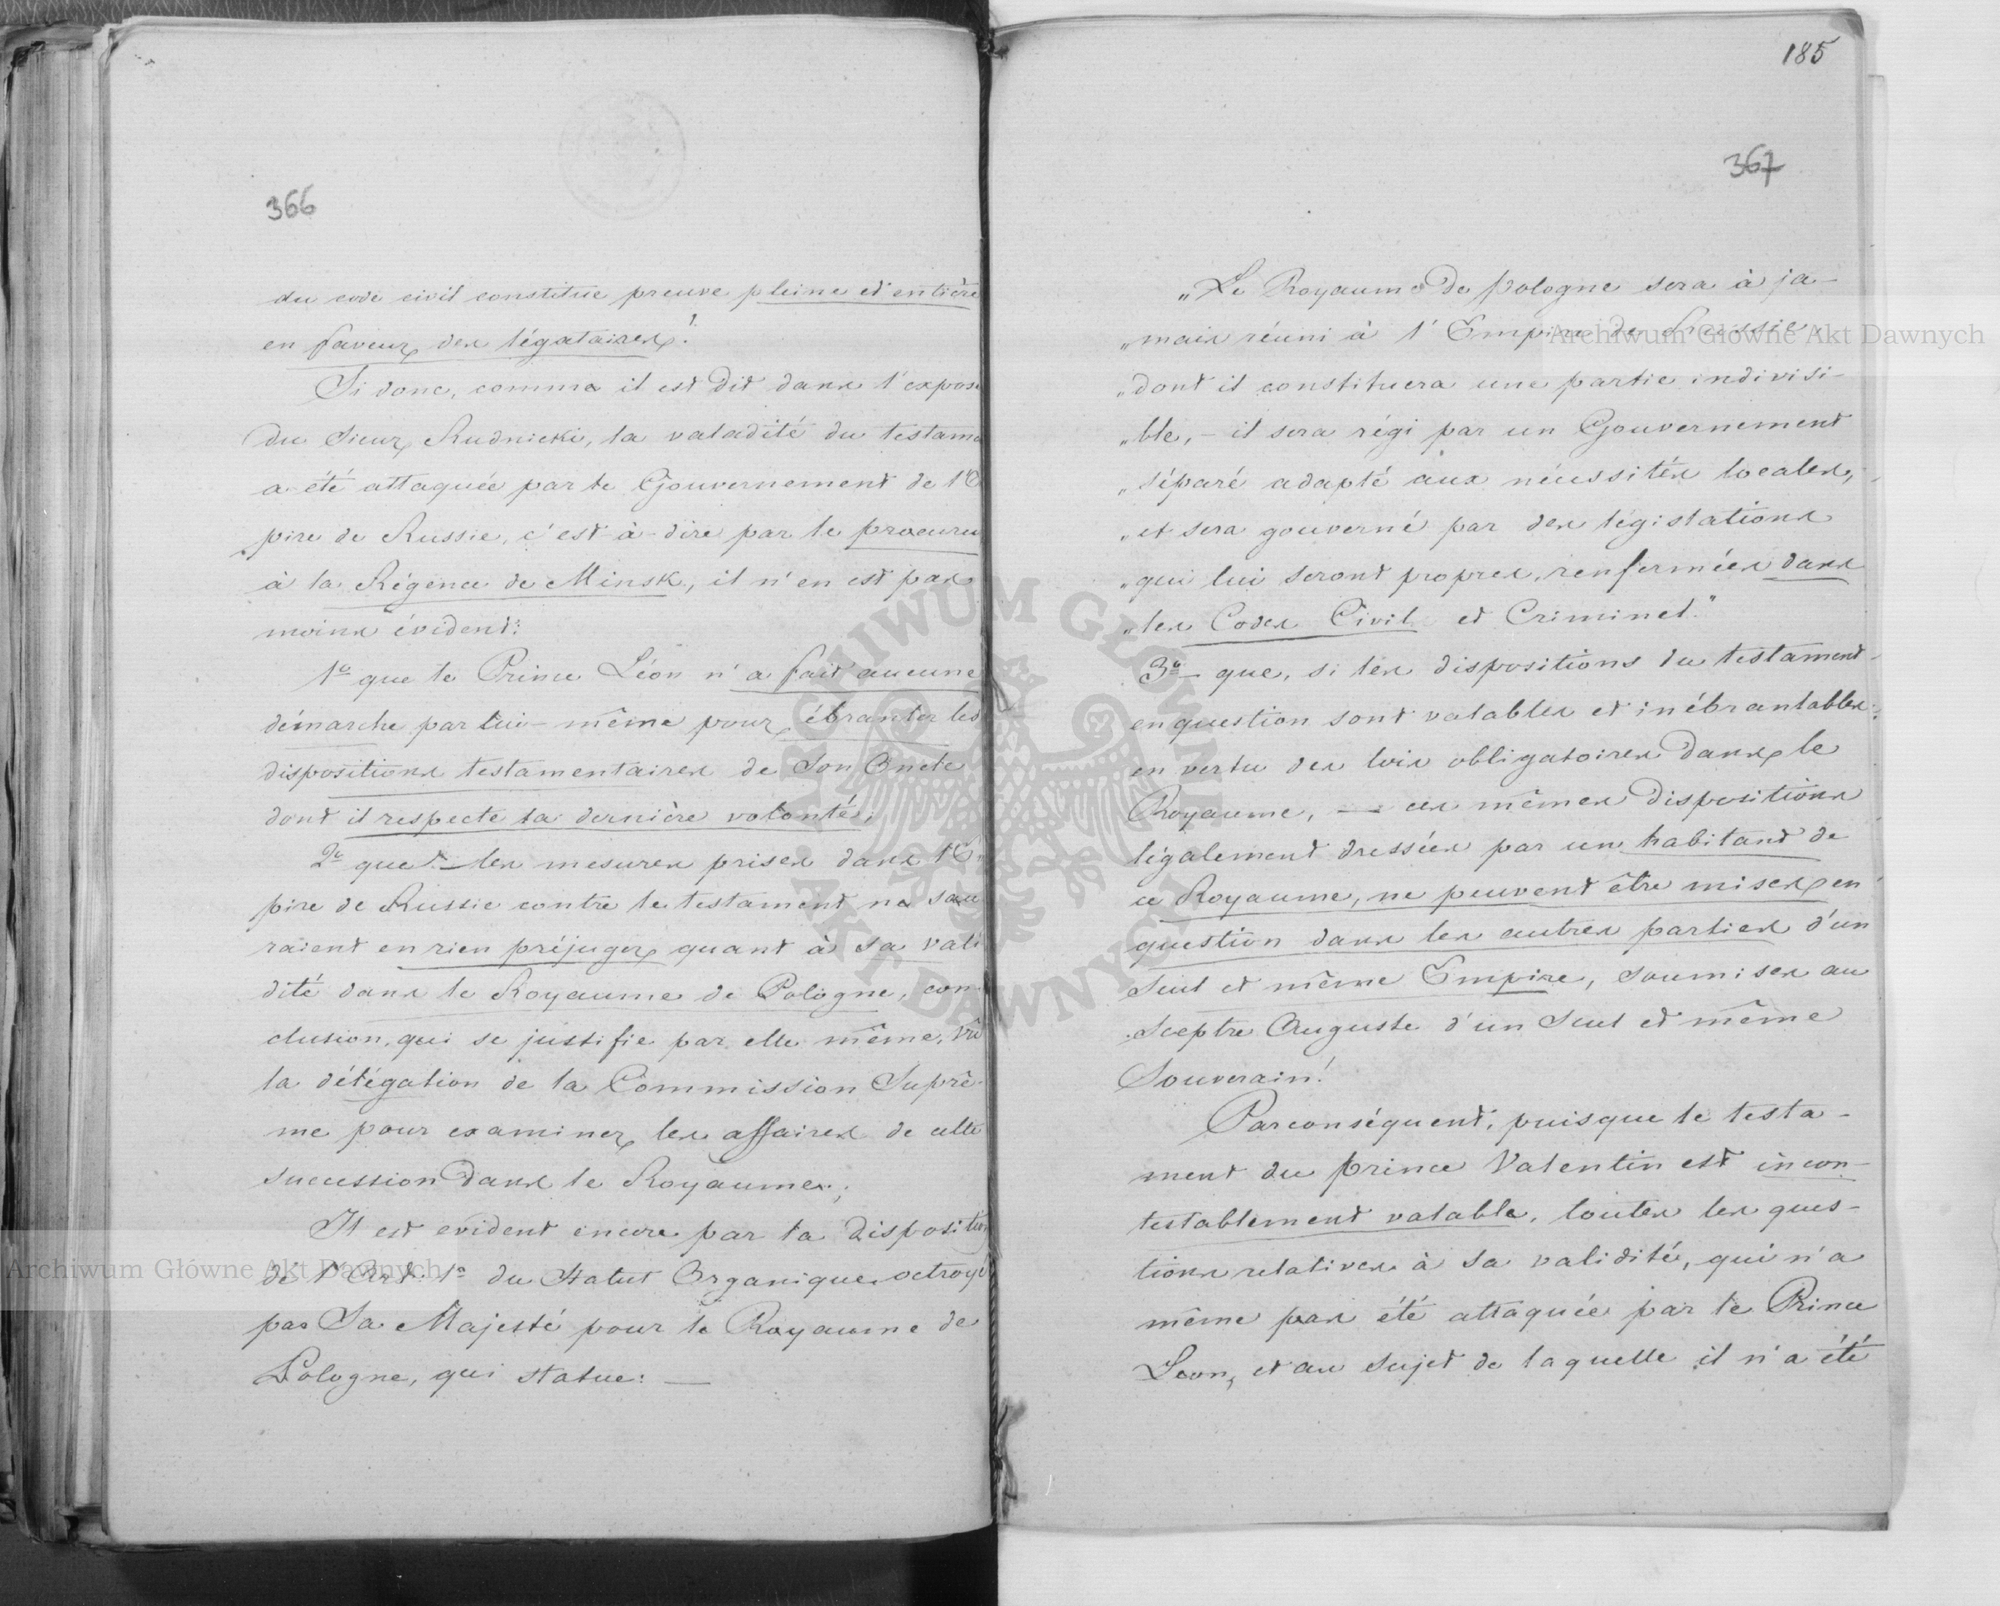 366
du code civil constitue preuve pleine et entière
en faveur des légataires!
Si donc, comme il est dit dans l'exposé
du Sieur Rudnicki, la valadité du testame
a été attaquée par le Gouvernement de l'E
pire de Russie, c'est-à-dire par le procureu
à la Régence de Minsk, il n'en est pas
moins évident:
1º que le Prince Léon n'a fait aucune
démarche par lui-même pour ébranler les
dispositions testamentaires de Son Oncle
dont il respecte la dernière volonté;
2º que les mesures prises dans l'E
pire de Russie contre le testament ne sau
raient en rien préjuger quant à sa vali
dité dans le Royaume de Pologne, con-
clusion, qui se justifie par elle même, vû
la délégation de la Commission Suprê-
me pour examiner les affaires de cette
succession dans le Royaume;
Il est evident encore par la disposition
de l'Art. 1º du Statut Organique octroyé
par Sa Majesté pour le Royaume de
Pologne, qui statue: —
185
367
„Le Royaume de Pologne sera à ja-
„mais réuni à l'Empire de Russie,
„dont il constituera une partie indivisi-
„ble, - il sera régi par un Gouvernement
„séparé adapté aux nécessités locales,
„et sera gouverné par des législations
„qui lui seront propres, renfermées dans
„les Codes Civil et Criminel."
3º que, si les dispositions du testament
en question sont valables et inébranlables
en vertu des lois obligatoires dans le
Royaume, — ces mêmes dispositions
légalement dressées par un habitant de
ce Royaume, ne peuvent être mises en
question dans les autres parties d'un
seul et même Empire, soumises au
Sceptre Auguste d'un Seul et même
Souverain!
Parconséquent, puisque le testa-
ment du Prince Valentin est incon-
testablement valable, toutes les ques-
tions relatives à sa validité, qui n'a
même pas été attaquée par le Prince
Leon, et au sujet de laquelle il n'a été
Archiwum Główne Akt Dawnych
Archiwum Główne Akt Dawnych
ARCHIWUM GŁÓWNE AKT DAWNYCH